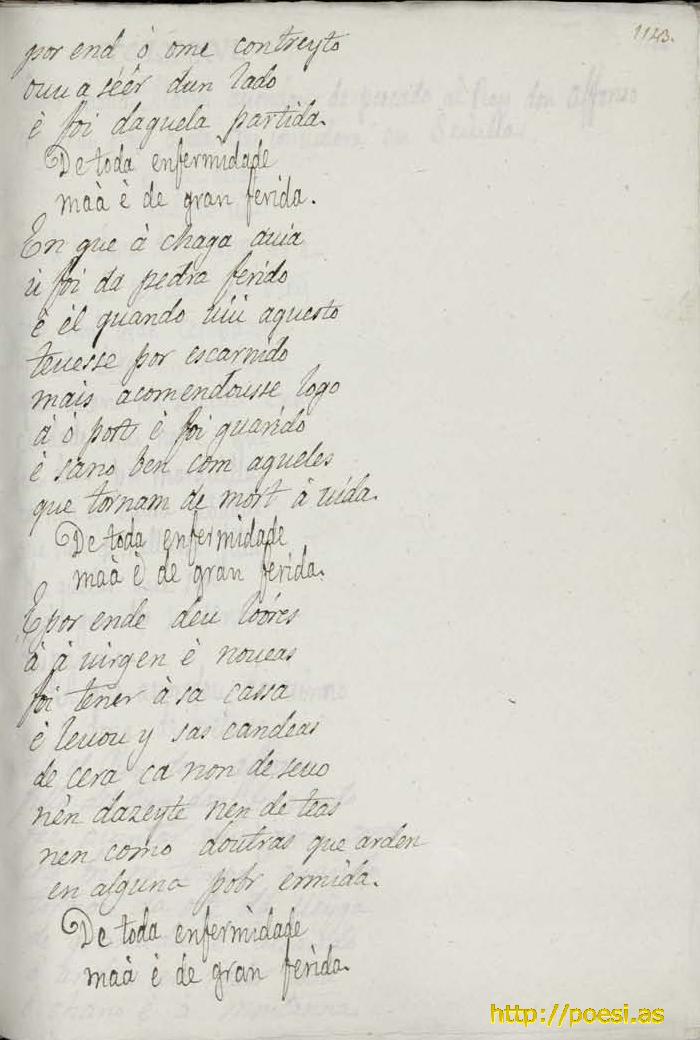 1143.
por end ò ome contreyto
ouu a séér dun lado
è foi daquela partida.
De toda enfermidade
maà è de gran ferida.
En que à chaga auia
ù foi da pedra ferido
è èl quando uiù aquesto
teuesse por escarnido
mais acomendousse logo
à ò port è foi guarido
è sano ben com aqueles
que tornam de mort à uida.
De toda enfermidade
maà è de gran ferida.
E por ende deu loóres
à à uirgen è noueas
foi tener à sa cassa
è leuou y sas candeas
de cera ca non de seuo
nèn dazeyte nen de teas
nen como doutras que arden
en alguna pobr ermida.
De toda enfermidade
maà è de gran ferida.
http://poesi.as